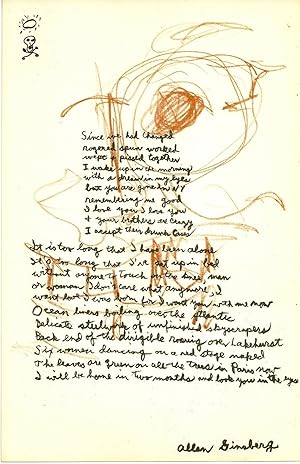 Since we had changed
rogered spun worked
wept & pissed together
I wake up in the morning
with a dream in my eyes
but you are gone in NY
remembering me good
I love you I love you
& your brothers are crazy
I accept their drunk cases
It is too long that I have been alone
It's too long that I've sat up in bed
without anyone to touch on the knee, man
or woman I don't care what anymore, I
want love I was born for I want you with me now
Ocean liners boiling over the Atlantic
Delicate steelwork of unfinished skyscrapers
Back end of the dirigible roaring over Lakehurst
Six women dancing on a red stage naked
The leaves are green on all the trees in Paris now
I will be home in two months and look you in the eyes
Allen Ginsberg